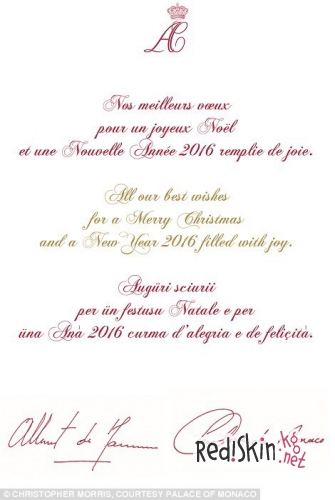 AC
Nos meilleurs vœux
pour un joyeux Noël
et une Nouvelle Année 2016 remplie de joie.
All our best wishes
for a Merry Christmas
and a New Year 2016 filled with joy.
Augüri sciurii
per ün festusu Natale e per
üna Anà 2016 curma d'alegria e de feliçità.
Albert de Monaco
Monaco
Red!Skin
.kgb.net
© CHRISTOPHER MORRIS, COURTESY PALACE OF MONACO